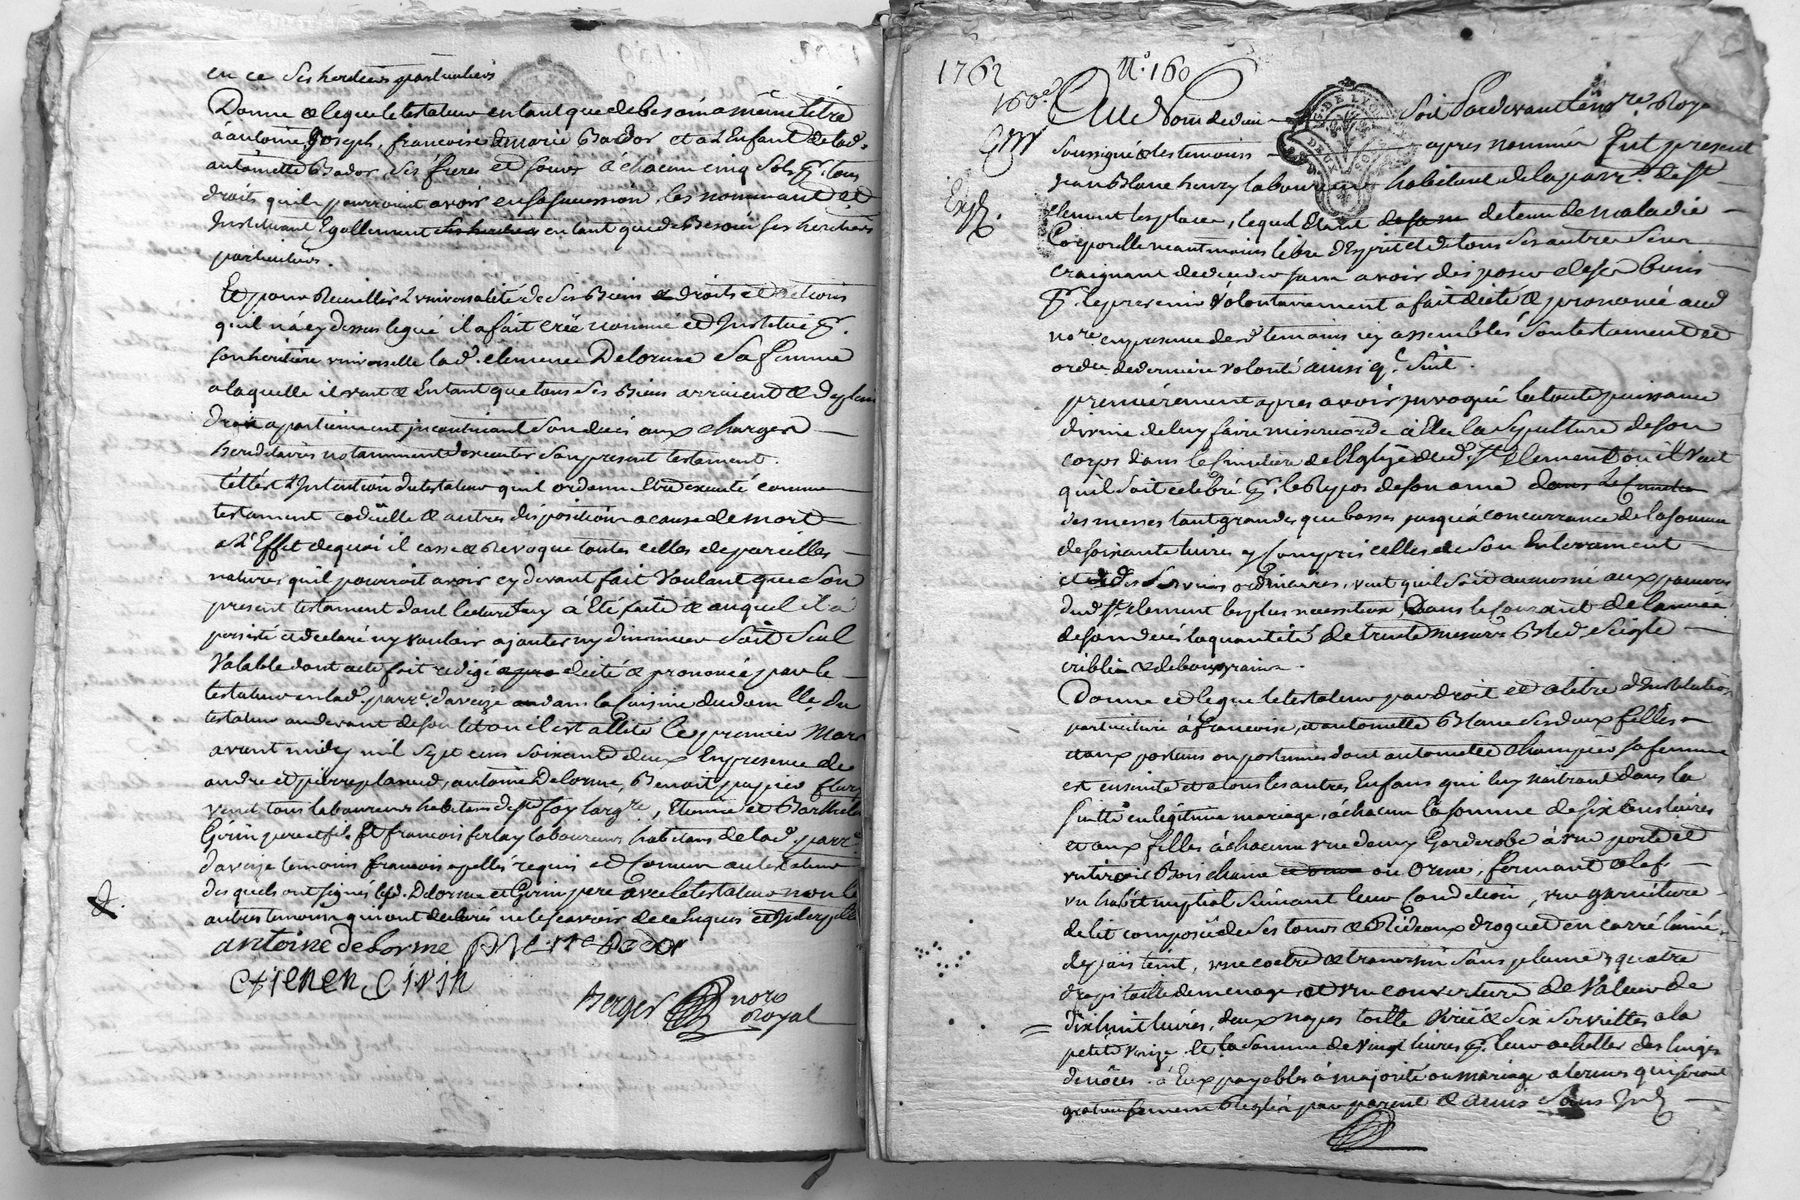 en ce ses heritiers particuliers
Donne & legue le testateur en tant que de besoin a même titre
à antoine, Joseph, francoise & marie Bador et a l'Enfant de lad.
antoinette Bador, ses freres et soeurs à chacun cinq sols pr. tous
droits quils pourroient avoir en sa succession, les nommant et
Instituant Egallement ses heritiers en tant que de Besoin ses heritiers
particuliers.
Et pour Recueillir L'universalité de ses Biens & droits et actions
qu'il n'a cy dessus legué il a fait créé nommé et Institué pr.
son heritiere universelle lad. clemence Delorme sa femme
a laquelle il veut & Entant que tous ses Biens arrivent & de plein
droit apartiennent incontinant son deces aux charges
hereditaires notamment d'executer son present testament.
telle est L'Intention du testateur qu'il ordonne Etre executé comme
testament codicille & autres disposition a cause de mort
a L'Effet de quoi il casse & Revoque toutes celles de pareilles
natures qu'il pourroit avoir cy devant fait Voulant que son
present testament dont lecture luy à Eté faite & auquel il a
persisté et declaré n'y vouloir ajouter ny diminuer soit seul
Valable dont acte fait redigé dicté & prononcé par le
testateur en lad. parre. d'aveize dans la cuisine du domlle. du
testateur au devant de son lit ou il est allité le premier Mars
avant midy mil sept cens soixante deux En presence de
andre et pierre planud, antoine Delorme, Benoit papier fleury
vend tous laboureurs habitans de st foy largre., Etienne et Barthelemy
Girin pere et fils & francois ferlay laboureurs habitans de lad. parre.
d'aveize temoins francois apellés requis et Connu au testateur
desquels ont signés led. Delorme et Girin pere avec le testateur non les
autres temoins qui ont declarés ne le scavoir de ce Enquis et Interpellé
antoine de lorme pierre Bador
etienen girin
Berger nore
Royal
1762 N°. 160
160e
Exp.
Au Nom de dieu soit Pardevant le nore. Royal
soussigné & les temoins apres nommés fut present
jean Blanc henry laboureur habitant de la parre. de st
clement les places, lequel Etant detenu de maladie
Corporelle neantmoins libre d'Esprit et de tous ses autres sens
craignant de deceder sans avoir disposer de ses biens
pr. le prevenir Volontairement a fait dicté & prononcé aud
nore. en presence desd temoins icy assemblés son testament et
ordce. de derniere volonté ainsi q. suit.
premiérement apres avoir invoqué la toute puissance
divine de luy faire misericorde à Elu la sepulture de son
corps dans le cimetiere de L'Eglise dud. st clement ou il Veut
qu'il soit celebré pr. le Repos de son ame dans le cimetiere
des messes tant grandes que basses jusqu'a concurrance de la somme
de soixante livres y compris celles de son Enterrement
et des services ordinaires, veut qu'il soit aumosné aux pauvres
dud st. clement les plus necessiteux, Dans le courant de l'année
de son deces la quantité de trente mesures Bled seigle
criblé & de bon grain.
Donne et legue le testateur par droit et a titre d'Institution
particuliere à francoise, et antoinette Blanc ses deux filles
et aux postume ou postumes dont antoinette champier sa femme
est enceinte et a tous les autres Enfans qui luy naitront dans la
suitte en légitime mariage, à chacun la somme de six cens livres
et aux filles à chacune une demy Garderobe à une porte et
un tiroir Bois chaine ou Orme, fermant a clef
un habit nuptial suivant leur Condition, une garniture
de lit composée de ses tours & Rideaux droguet en carré laine
de pais teint, une coetre & traversin sans plume, quatre
draps toille de menage, et une couverture de valeur de
dix huit livres, deux napes toille & six serviettes a la
petite Venize & la somme de vingt livres pr. leur achetter des linges
de nôces. à Eux payables à majorité ou mariage a termes qui seront
gratieusement Reglés par parens & amis sans Int.